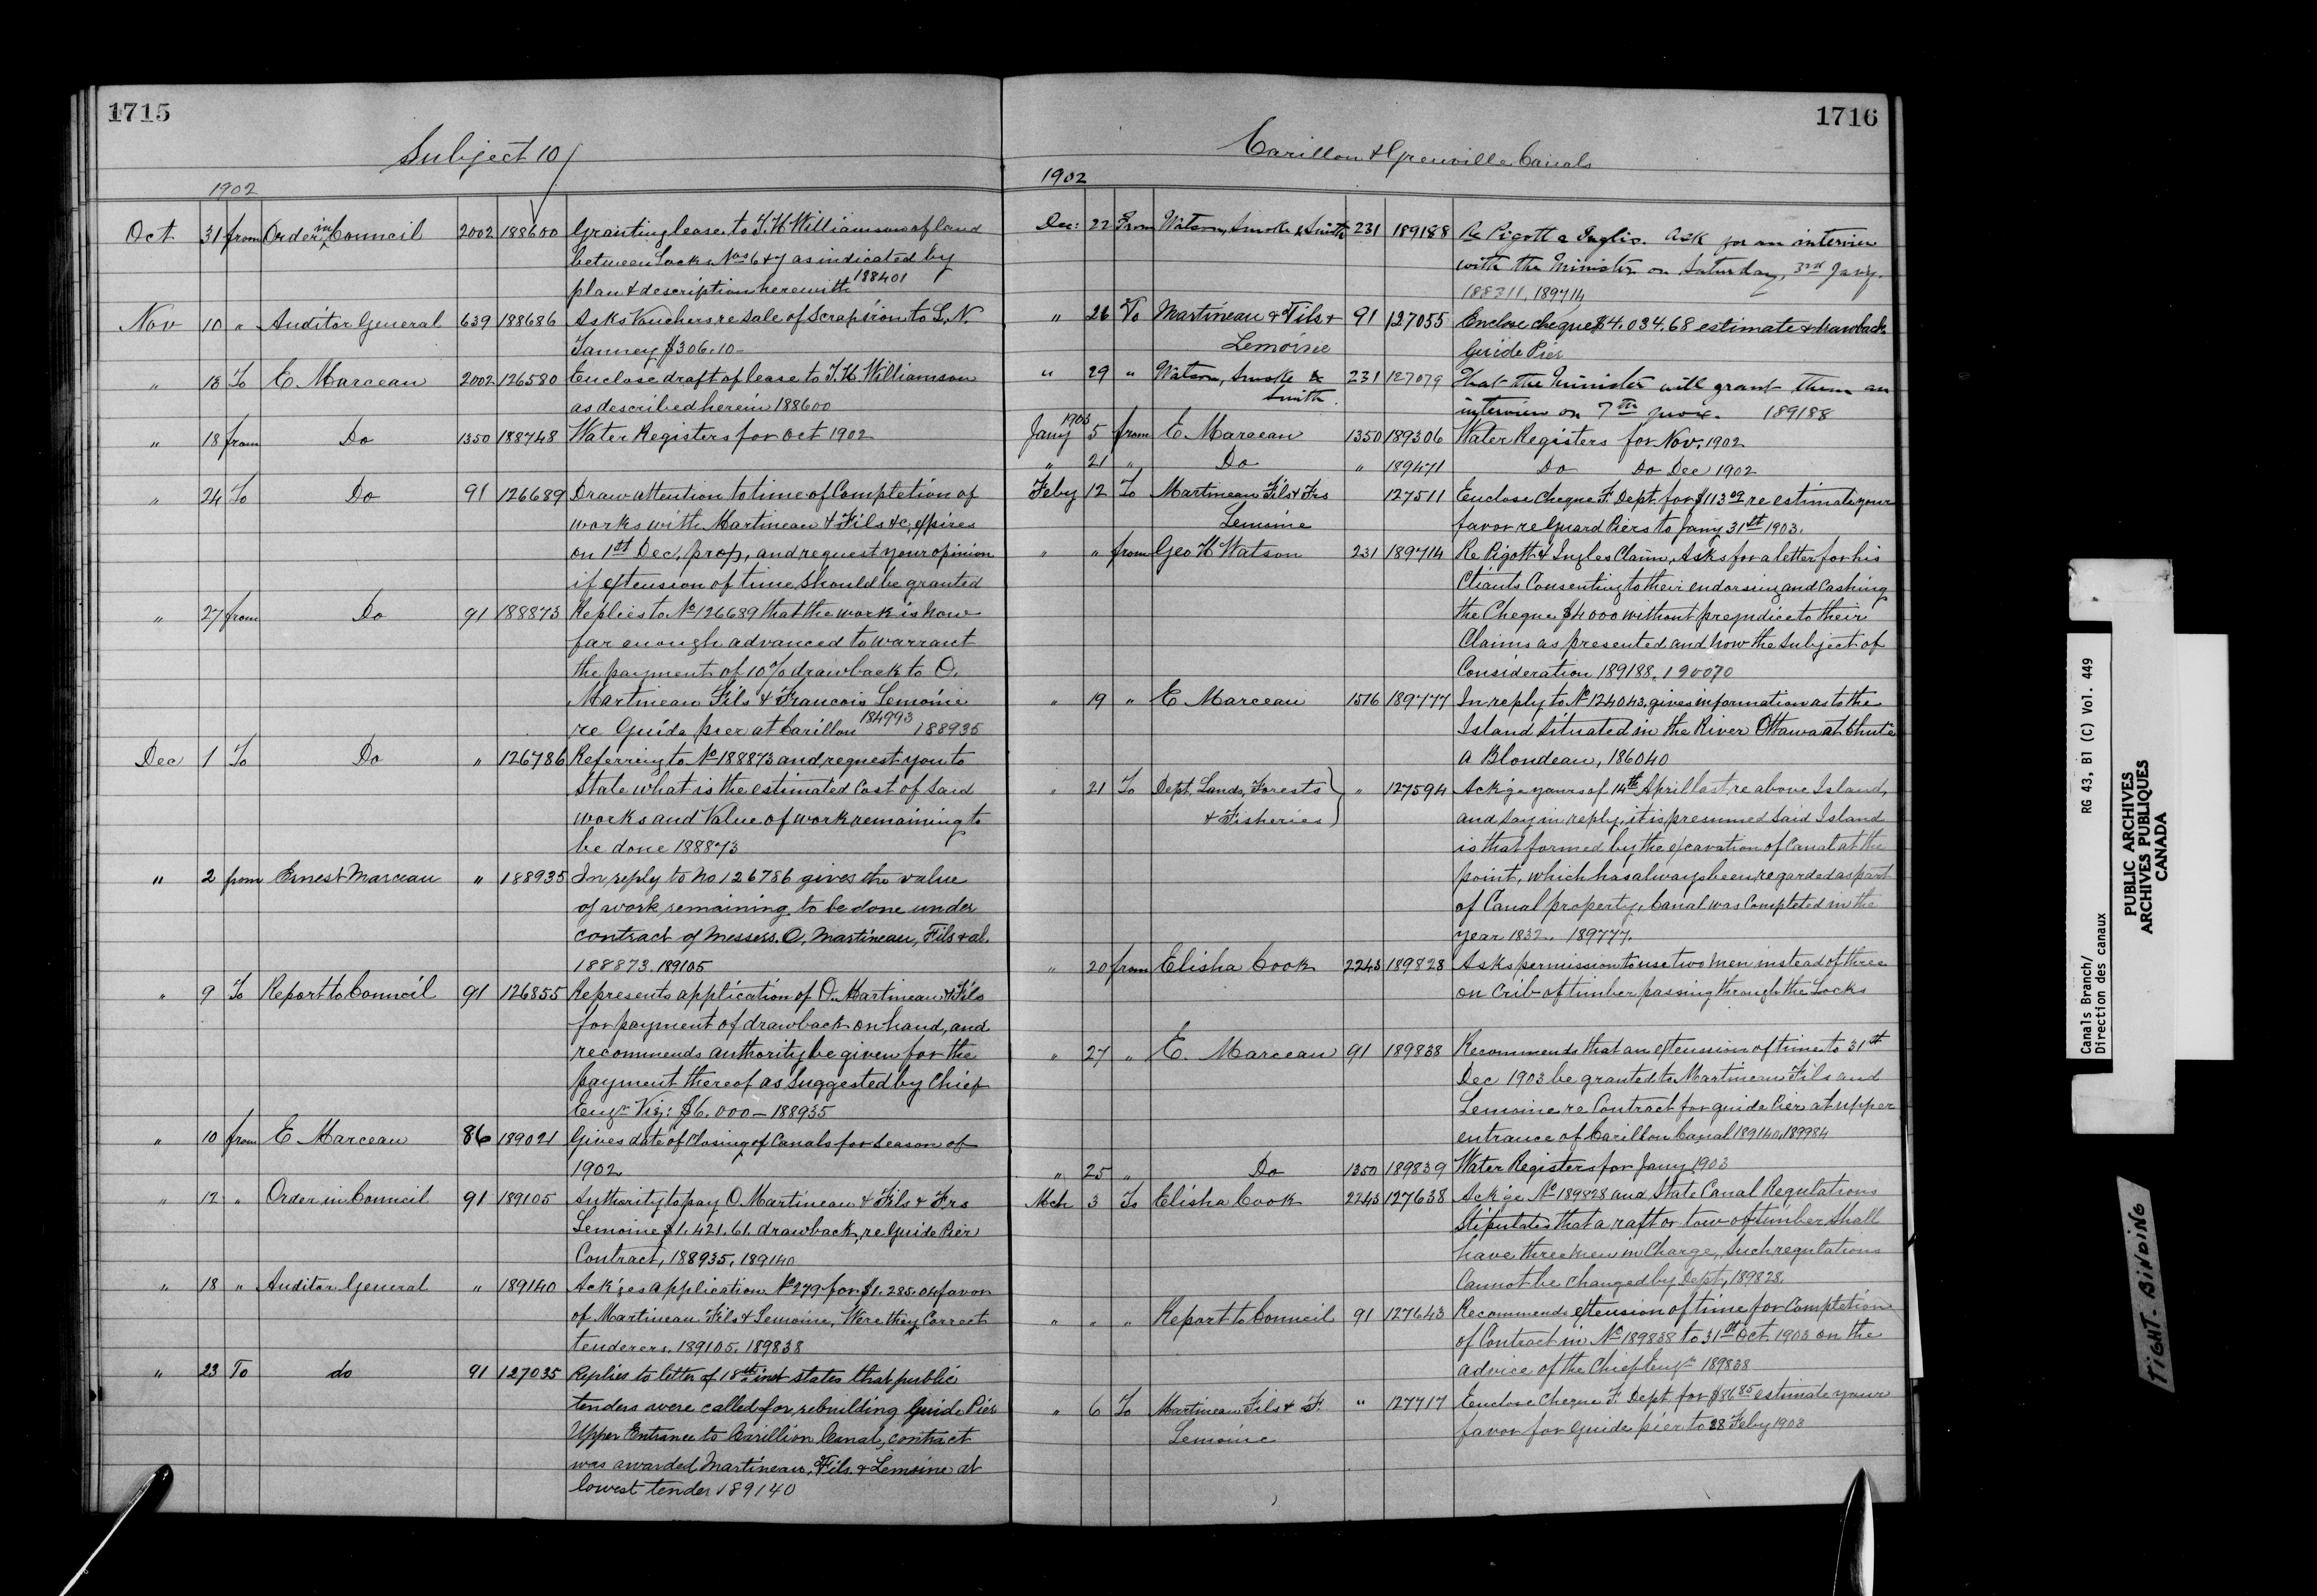 1715
Subject 10
1902
Oct 31 from Order in Council 2002 188600 Granting lease to T. H. Williamson of land
between Locks Nos 6 & 7 as indicated by
plan & description herewith 188401
Nov 10 " Auditor General 639 188686 Asks Vouchers re Sale of Scrap iron to L. N.
Tanney $306.10-
" 13 To E. Marceau 2002 126580 Enclose draft of lease to T. H. Williamson
as described herein 188600
" 18 from Do 1350 188748 Water Registers for Oct 1902
" 24 To Do 91 126689 Draw attention to time of Completion of
works with Martineau & Fils &c, expires
on 1st Dec. prox, and request your opinion
if extension of time should be granted
" 27 from Do 91 188873 Replies to No 126689 that the work is now
far enough advanced to warrant
the payment of 10% drawback to O.
Martineau Fils & Francois Lemoine
re Guide pier at Carillon 184993 188935
Dec 1 To Do " 126786 Referring to No 188873 and request you to
State what is the estimated Cost of Said
works and Value of work remaining to
be done 188873
" 2 from Ernest Marceau " 188935 In reply to No 126786 gives the value
of work remaining to be done under
contract of Messers. O. Martineau, Fils & al.
188873. 189105
" 9 To Report to Council 91 126855 Represents application of O. Martineau & Fils
for payment of drawback on hand, and
recommends authority be given for the
payment thereof as Suggested by Chief
Engr Viz: $6.000 – 188935
" 10 from E Marceau 86 189021 Gives date of Closing of Canals for Season of
1902
" 12 " Order in Council 91 189105 Authority to pay O. Martineau & Fils & Frs
Lemoine $1.421.61. drawback, re Guide Pier
Contract, 188935, 189140
" 18 " Auditor General " 189140 Ack'ges application No 279 for $1.285.04 favor
of Martineau Fils & Lemoine, Were they Correct
tenderers. 189105. 189838
" 23 To do 91 127035 Replies to letter of 18th inst states that public
tenders were called for rebuilding Guide Pier
Upper Entrance to Carillion Canal, contract
was awarded Martineau, Fils & Lemoine at
lowest tender 189140
1716
Carillon & Grenville Canals
1902
Dec: 22 From Watson, Smoke & Smith 231 189188 Re Pigott & Inglis. Ask for an interview
with the Minister on Saturday, 3rd Jany.
188311, 189714
" 26 To Martineau & Fils & 91 127055 Enclose cheque $4.034.68 estimate & drawback
Lemoine Guide Pier
" 29 " Watson, Smoke & 231 127079 That the Minister will grant them an
Smith. interview on 7th prox. 189188
1903
Jany 5 from E. Marceau 1350 189306 Water Registers for Nov. 1902
" 21 " Do " 189471 Do Do Dec 1902
Feby 12 To Martineau Fils & Frs 127511 Enclose Cheque F. Dept. for $113 re estimate your
Lemoine favor re Guard Piers to Jany 31st 1903.
" " from Geo H Watson 231 189714 Re Pigott & Ingles Claim, Asks for a letter for his
Clients Consenting to their endorsing and Cashing
the Cheque $4000 without prejudice to their
Claims as presented and now the Subject of
Consideration 189188, 190070
" 19 " E Marceau 1516 189777 In reply to No 124043, gives information as to the
Island Situated in the River Ottawa at Chute
a Blondeau, 186040
" 21 To Dept. Lands, Forests " 127594 Ack'ge yours of 14th April last re above Island,
& Fisheries and Say in reply, it is presumed Said Island
is that formed by the excavation of Canal at the
point, which has always been regarded as part
of Canal property, Canal was Completed in the
year 1832. 189777.
" 20 from Elisha Cook 2243 189828 Asks permission to use two men instead of three
on Crib of timber passing through the Locks
" 27 " E. Marceau 91 189838 Recommends that an extension of time to 31st
Dec 1903 be granted to Martineau Fils and
Lemoine re Contract for guide Pier at upper
entrance of Carillon Canal 189140, 189984
" 25 " Do 1350 189839 Water Registers for Jany 1903
Mch 3 To Elisha Cook 2243 127638 Ack'ge No 189828 and State Canal Regulations
Stipulates that a raft or tow of timber Shall
have three men in Charge, Such regulations
Cannot be Changed by Dept, 189828.
" " " Report to Council 91 127643 Recommends extension of time for Completion
of Contract in No 189838 to 31st Oct 1903 on the
advice of the Chief Engr 189838
" 6 To Martineau Fils & F. " 127717 Enclose Cheque F. Dept. for $86.85 estimate your
Lemoine favor for Guide pier to 28 Feby 1903
Canals Branch/ RG 43, B1 (C) Vol. 449
Direction des canaux
PUBLIC ARCHIVES
ARCHIVES PUBLIQUES
CANADA
TIGHT BINDING